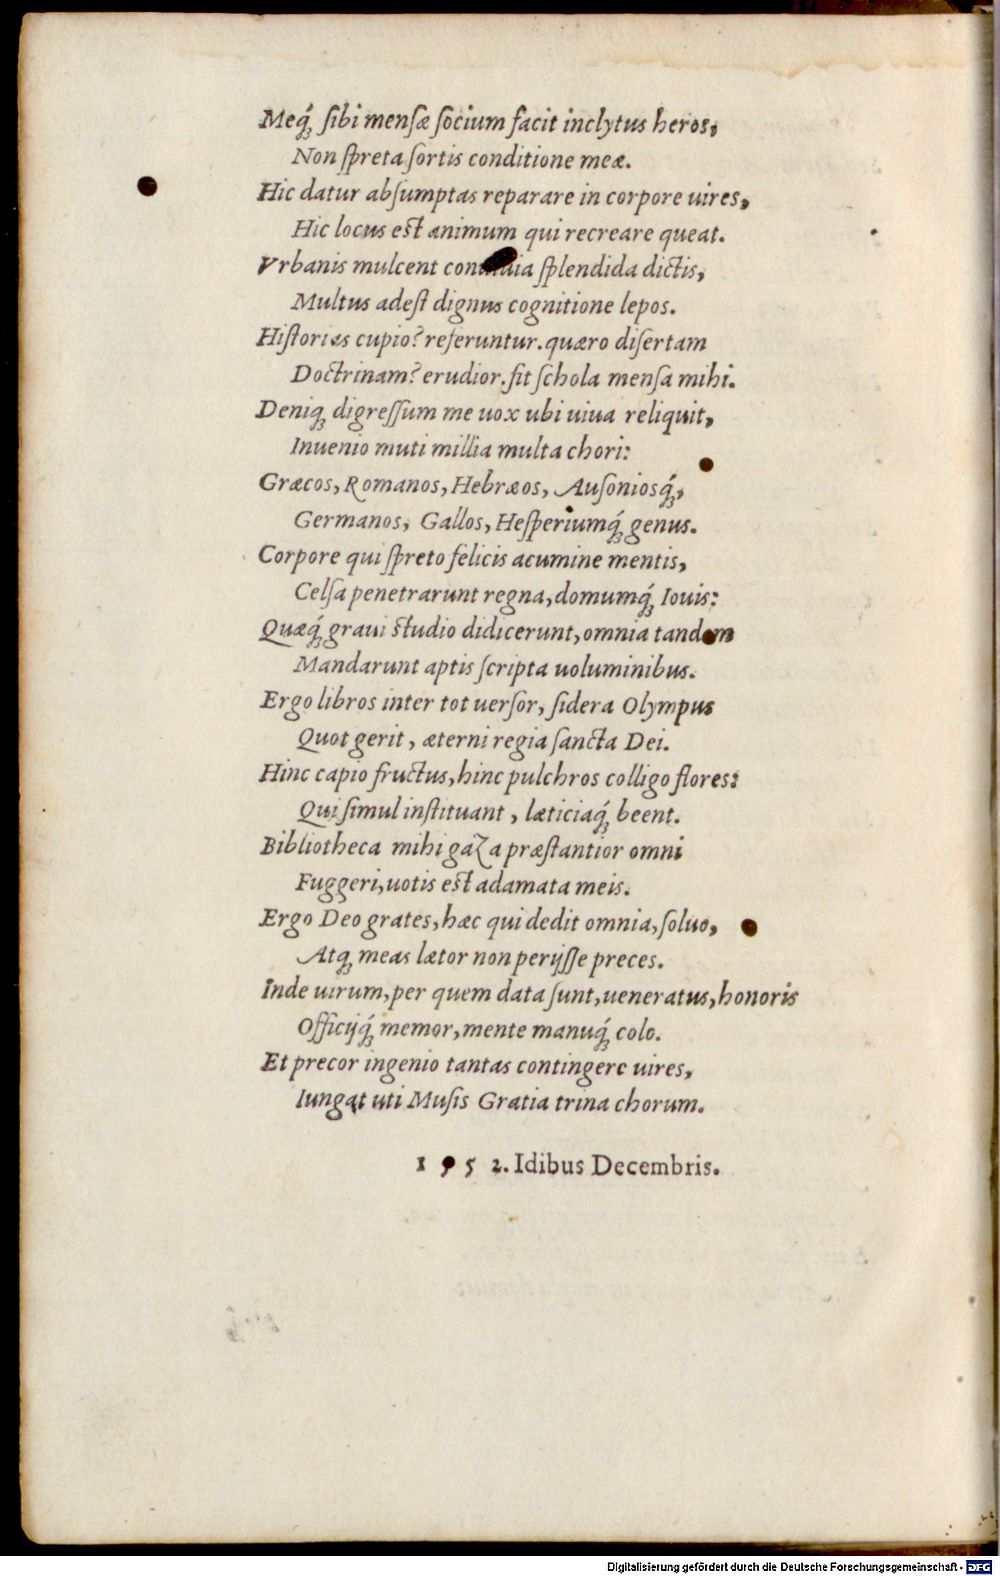 Meq́; ſibi menſæ ſocium facit inclytus heros,
Non ſpreta ſortis conditione meæ.
Hic datur abſumptas reparare in corpore uires,
Hic locus est animum qui recreare queat.
Vrbanis mulcent ſplendida dictis,
Multus adeſt dignus cognitione lepos.
Hiſtorias cupio? referuntur. quæro diſertam
Doctrinam? erudior. fit ſchola menſa mihi.
Deniq; digreſſum me uox ubi uiua reliquit,
Inuenio muti millia multa chori:
Græcos, Romanos, Hebræos, Auſoniosq́;,
Germanos, Gallos, Heſperiumq́; genus.
Corpore qui ſpreto felicis acumine mentis,
Celſa penetrarunt regna, domumq́; Iouis:
Quæq́; graui studio didicerunt, omnia tandem
Mandarunt aptis ſcripta uoluminibus.
Ergo libros inter tot uerſor, ſidera Olympus
Quot gerit, æterni regia ſancta Dei.
Hinc capio fructus, hinc pulchros colligo flores:
Qui ſimul inſtituant, læticiaq́; beent.
Bibliotheca mihi gaza præſtantior omni
Fuggeri, uotis est adamata meis.
Ergo Deo grates, hæc qui dedit omnia, ſoluo,
Atq; meas lætor non perijſſe preces.
Inde uirum, per quem data ſunt, ueneratus, honoris
Officijq́; memor, mente manuq́; colo.
Et precor ingenio tantas contingere uires,
Iungat uti Muſis Gratia trina chorum.
1 9 5 2. Idibus Decembris.
Digitalisierung gefördert durch die Deutsche Forschungsgemeinschaft - DFG